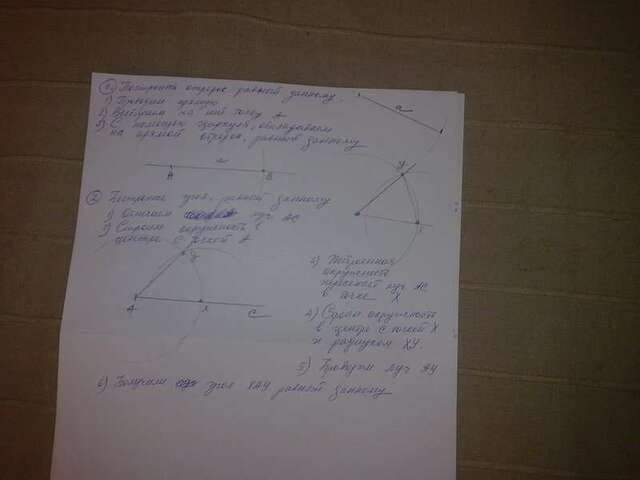 ① Построить отрезок равный данному.
1) Проводим прямую
2) Выбираем на ней точку A
3) С помощью циркуля, откладываем
на прямой отрезок, равный данному
a
a
A B
② Построить угол, равный данному
1) луч AC
2) Строим окружность в
центре с точкой A
y
y
A x C
3) Построенная
окружность
пересекает луч AC
в точке X
4) Строим окружность
в центре с точкой X
и радиусом XY.
5) Проводим луч AY
6) Получили угол XAY равный данному